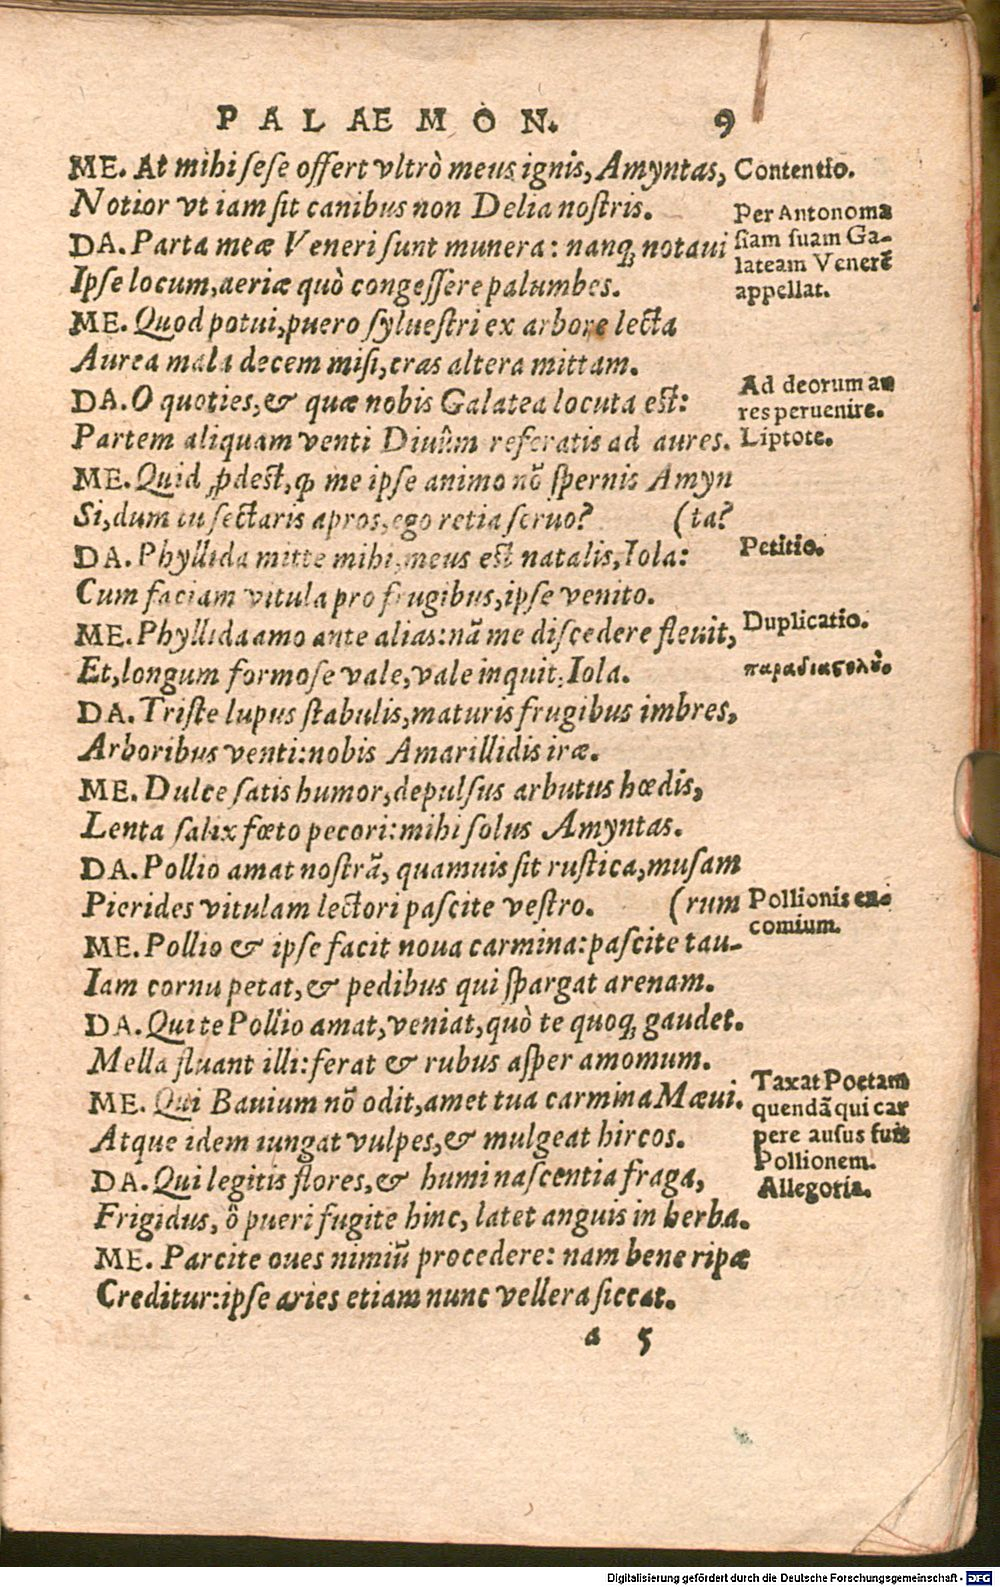 PALAEMON. 9
ME. At mihi sese offert vltrò meus ignis, Amyntas,
Contentio.
Notior vt iam sit canibus non Delia nostris.
Per Antonoma
DA. Parta meæ Veneri sunt munera: nanq; notaui
siam suam Ga-
lateam Venerē
Ipse locum, aeriæ quò congessere palumbes.
appellat.
ME. Quod potui, puero syluestri ex arbore lecta
Aurea mala decem misi, cras altera mittam.
DA. O quoties, & quæ nobis Galatea locuta est:
Ad deorum au
res peruenire.
Partem aliquam venti Diuûm referatis ad aures.
Liptote.
ME. Quid ꝓdest, ꝙ me ipse animo nō spernis Amyn
Si, dum tu sectaris apros, ego retia seruo? (ta?
DA. Phyllida mitte mihi, meus est natalis, Iola:
Petitio.
Cum faciam vitula pro frugibus, ipse venito.
ME. Phyllida amo ante alias: nā me discedere fleuit,
Duplicatio.
Et, longum formose vale, vale inquit, Iola.
DA. Triste lupus stabulis, maturis frugibus imbres,
Arboribus venti: nobis Amarillidis iræ.
ME. Dulce satis humor, depulsus arbutus hœdis,
Lenta salix fœto pecori: mihi solus Amyntas.
DA. Pollio amat nostrā, quamuis sit rustica, musam
Pierides vitulam lectori pascite vestro. (rum
Pollionis en-
comium.
ME. Pollio & ipse facit noua carmina: pascite tau-
Iam cornu petat, & pedibus qui spargat arenam.
DA. Qui te Pollio amat, veniat, quò te quoq; gaudet.
Mella fluant illi: ferat & rubus asper amomum.
Taxat Poetam
ME. Qui Bauium nō odit, amet tua carmina Mæui.
quendā qui car
Atque idem iungat vulpes, & mulgeat hircos.
pere ausus fuit
Pollionem.
DA. Qui legitis flores, & humi nascentia fraga,
Allegoria.
Frigidus, ô pueri fugite hinc, latet anguis in herba.
ME. Parcite oues nimiū procedere: nam bene ripæ
Creditur: ipse aries etiam nunc vellera siccat.
a 5
Digitalisierung gefördert durch die Deutsche Forschungsgemeinschaft - DFG